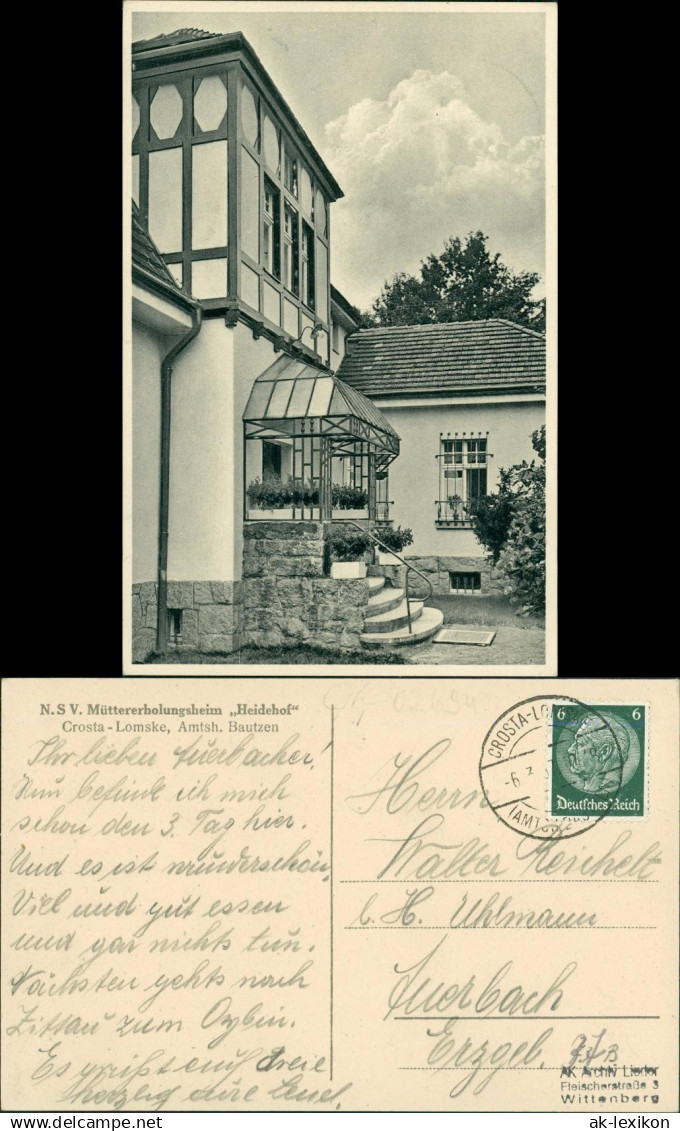 N. S V. Müttererholungsheim „Heidehof“
Crosta-Lomske, Amtsh. Bautzen
Ihr lieben Auerbacher!
Nun befinde ich mich
schon den 3. Tag hier.
Und es ist wunderschön,
Viel und gut essen
und gar nichts tun.
Nächsten gehts nach
Zittau zum Oybin.
Es grüßt euch
herzlich eure
CROSTA-LO
-6.
(AMTSH.
6 6
Deutsches Reich
Herrn
Walter Reichelt
b. H. Uhlmann
Auerbach
Erzgeb.
AK Archiv Lieder
Fleischerstraße 3
Wittenberg
ak-lexikon